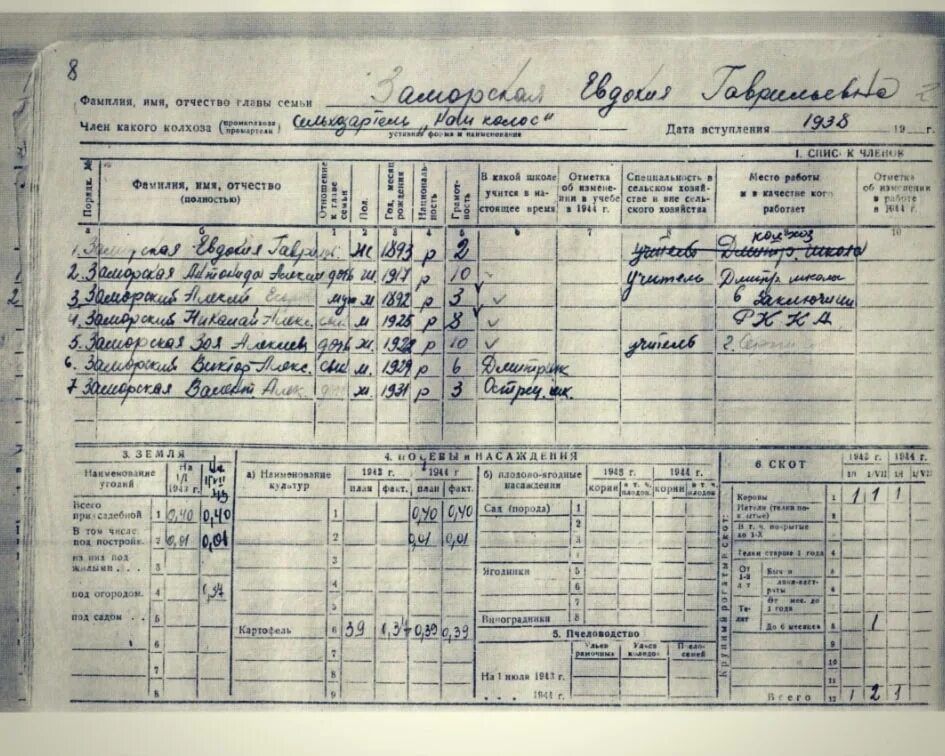 8
Фамилия, имя, отчество главы семьи Заморская Евдокия Гаврильевна 2
Член какого колхоза (промколхоза / промартели) Сельхозартель "Наш колос" Дата вступления 1938 19 г.
уставная форма и наименование
1. СПИСОК ЧЛЕНОВ
Порядк. № Фамилия, имя, отчество (полностью) Отношение к главе семьи Пол. Год, месяц рождения Национальность Грамотность В какой школе учится в настоящее время Отметка об изменении в учебе в 1944 г. Специальность в сельском хозяйстве и вне сельского хозяйства Место работы и в качестве кого работает Отметка об изменении в работе в 1944 г.
а б 1 2 3 4 5 6 7 10
колхоз
1. Заморская Евдокия Ж 1893 р 2 учитель Дмитр. школа
2. Заморская Алексан дочь ж. 1917 р 10 учитель Дмитр школа
3 Заморский Алексей муж м 1892 р 3 в заключении
4. Заморский Николай Алекс. сын м 1925 р 8 РККА
5. Заморская Зоя Алексеев дочь ж. 1922 р 10 учитель г.
6. Заморский Виктор Алекс. сын м. 1929 р 6 Дмитр. шк
7 Заморская Валент Алек ж. 1931 р 3 Острец. шк.
3. ЗЕМЛЯ 4. ПОСЕВЫ и НАСАЖДЕНИЯ 6. СКОТ 1943 г. 1944 г.
Наименование угодий На 1/I 1943 г. а) Наименование культур 1943 г. 1944 г. б) плодово-ягодные насаждения 1943 г. 1944 г. 1/I 1/VII 1/I 1/VII
план факт. план факт. корни в т. ч. плодон. корни в т. ч. плодон.
Крупный рогатый скот:
Коровы 1 1 1 1
Всего приусадебной 1 0,40 0,40 1 0,40 0,40 Сад (порода) 1
Нетели (телки покрытые) 2
В том числе: под постройк. 2 0,01 0,01 2 0,01 0,01 2
В т. ч. покрытые до 1-X 3
на них под жилыми . . . 3 3 3
4
Телки старше 1 года 4
под огородом. 4 0,37 4 Ягодники 5
От 1-2 л т Бычки 5
6
под садом . . 5 5 7
Телят От мес. до 1 года
6 Картофель 6 39 0,37 0,39 0,39 Виноградники 8
До 6 месяцев 8 1
7 7 5. Пчеловодство 9
Ульев рамочных Ульев колодок Пчелосемей 10
8 8 На 1 июля 1943 г. 11
9 . . . 1944 г. Всего 12 1 2 1